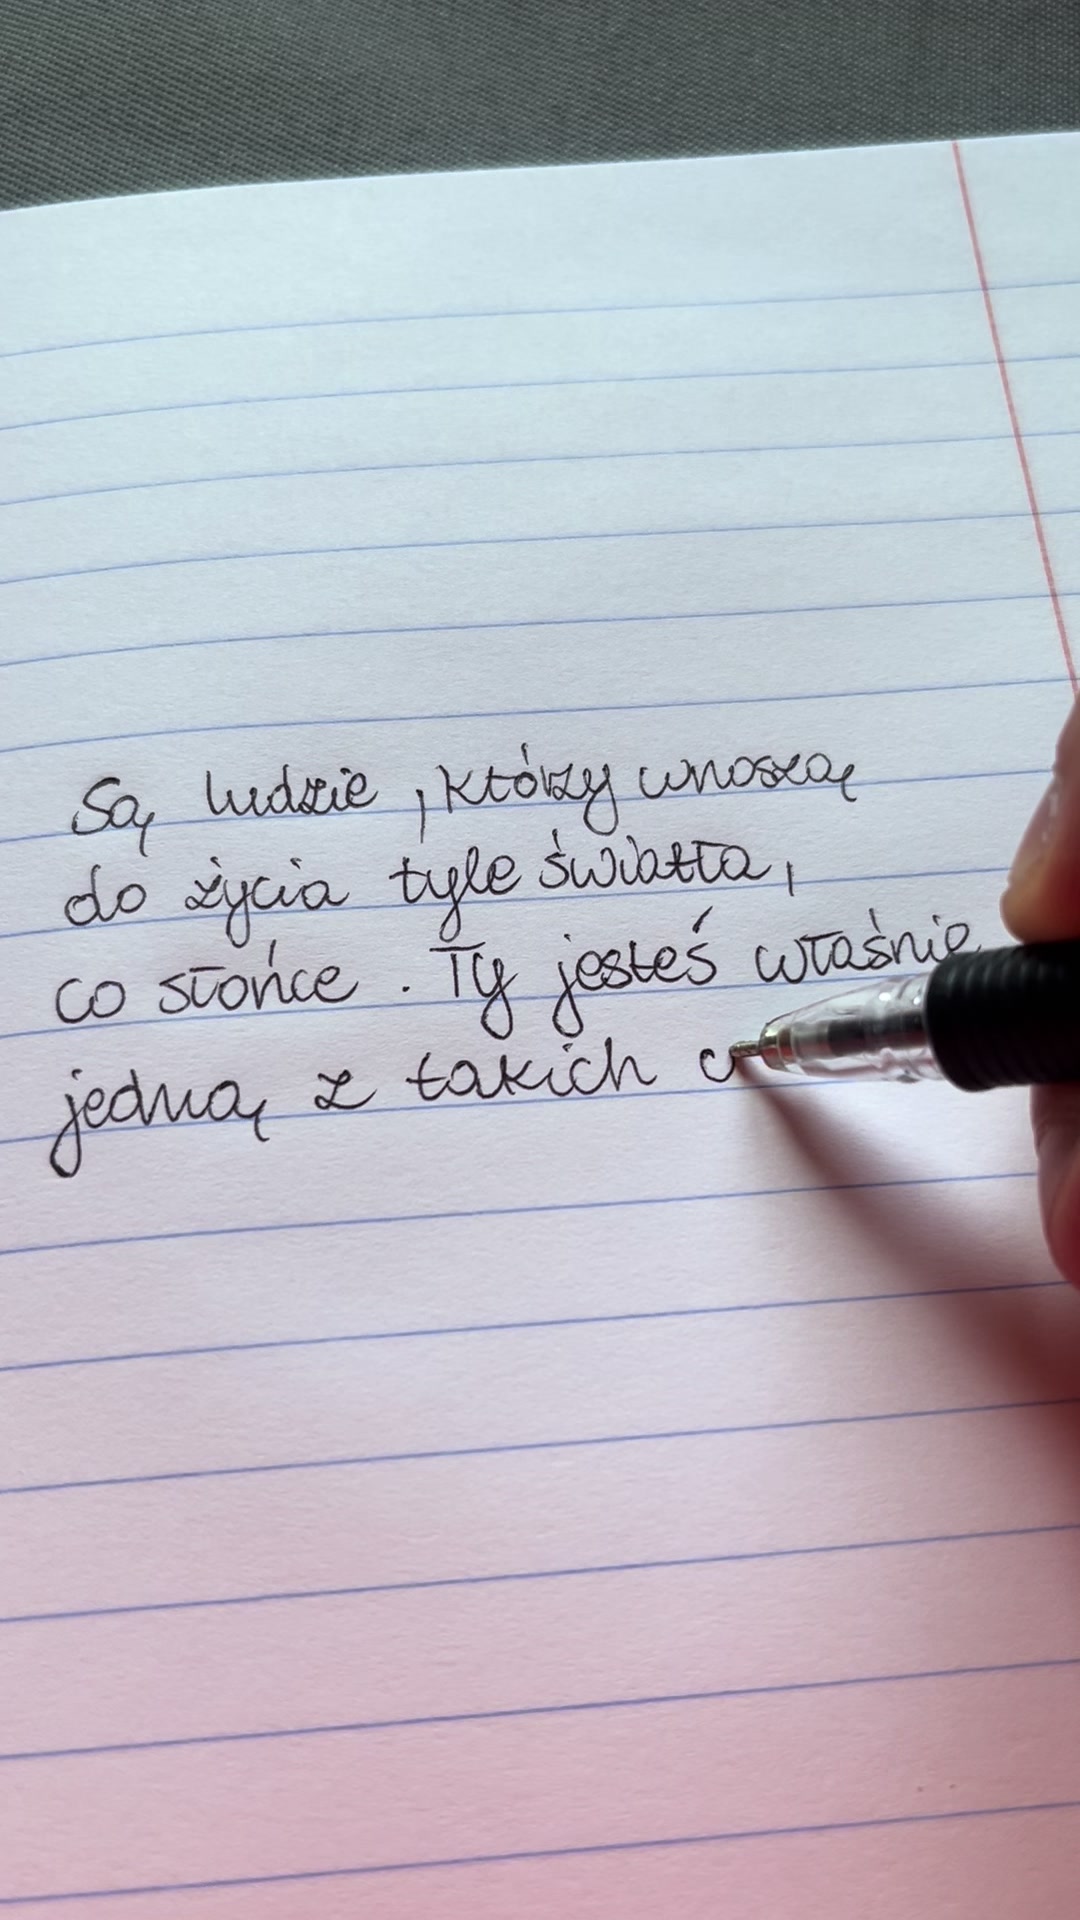 Są ludzie, którzy wnoszą
do życia tyle światła,
co słońce. Ty jesteś właśnie
jedną z takich